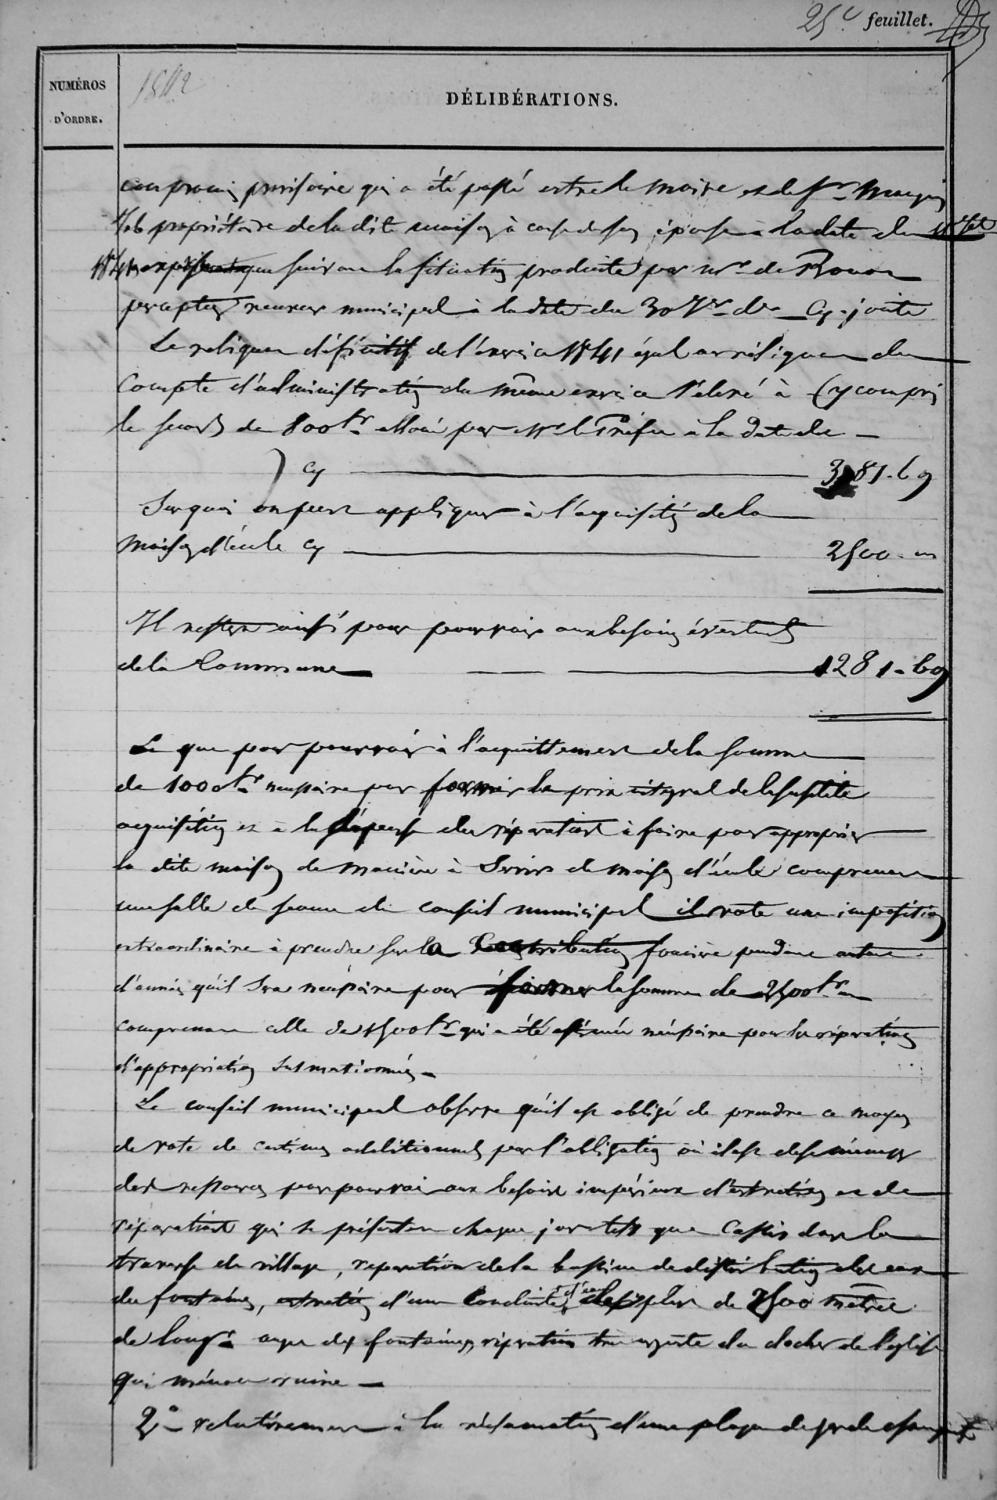 25e feuillet.
NUMÉROS D'ORDRE.
1842
DÉLIBÉRATIONS.
compromis provisoire qui a été passé entre le maire et le Sr
propriétaire de la dite maison à cause de son épouse à la date du
que suivant la situation produite par Mr de
percepteur receveur municipal à la date du 30 ci-jointe
Le reliquat définitif de l'exercice 1841 égal au reliquat du
Compte d'administration du même exercice s'élevé à (y compris
le secours de 800 fr alloué par Mr le Préfet à la date du —
cy — 3781.69
Sur quoi on peut appliquer à l'acquisition de la
maison d'école cy — 2500 —
Il restera ainsi pour pourvoir aux besoins éventuels
de la Commune — 1281.69
Le que pour pourvoir à l'acquittement de la somme
de 1000 fr nécessaire pour former le prix intégral de la susdite
acquisition et à la dépense des réparations à faire pour approprier
la dite maison de manière à servir de maison d'école comprenant
une salle de séance du conseil municipal il vote une imposition
extraordinaire à prendre sur la Contribution foncière pendant autant
d'années qu'il sera nécessaire pour former la somme de 2500 fr en
comprenant celle de 1500 fr qui a été estimée nécessaire pour les réparations
d'appropriation susmentionnées.
Le conseil municipal observe qu'il est obligé de prendre ce moyen
de vote de centimes additionnels par l'obligation où il est de se ménager
des ressources pour pourvoir aux besoins impérieux d'entretien et de
réparations qui se présentent chaque jour tels que Cassis dans la
traverse du village, réparation de la bassine de distribution des eaux
des fontaines, entretien d'une Conduite d'eau de plus de 2500 mètres
de long aux dex fontaines, réparation très urgente du clocher de l'église
qui ménace ruine —
2° relativement à la réclamation d'une plaque de garde champêtre